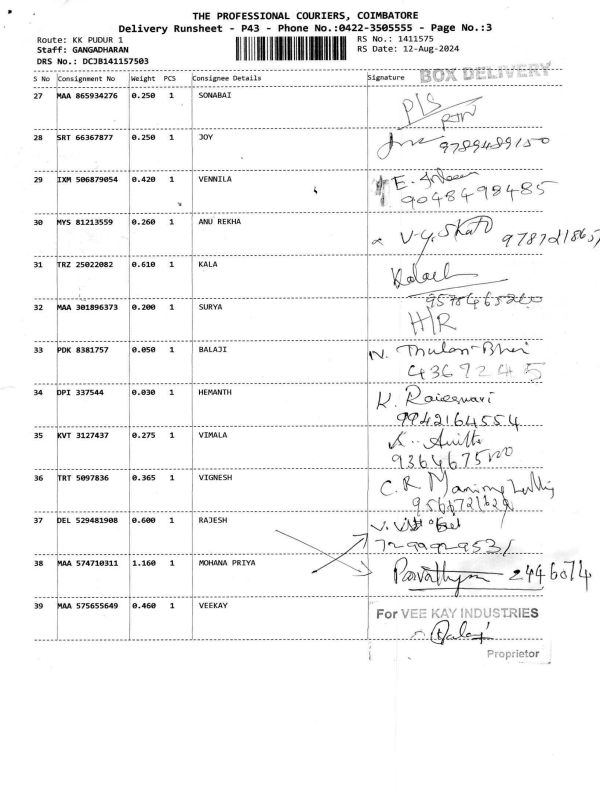 THE PROFESSIONAL COURIERS, COIMBATORE
Delivery Runsheet - P43 - Phone No.:0422-3505555 - Page No.:3
Route: KK PUDUR 1 RS No.: 1411575
Staff: GANGADHARAN RS Date: 12-Aug-2024
DRS No.: DCJB141157503
BOX DELIVERY
S No Consignment No Weight PCS Consignee Details Signature
27 MAA 865934276 0.250 1 SONABAI P/S
28 SRT 66367877 0.250 1 JOY
9789489150
29 IXM 506879054 0.420 1 VENNILA E.
9048498485
30 MYS 81213559 0.260 1 ANU REKHA
31 TRZ 25022082 0.610 1 KALA
32 MAA 301896373 0.200 1 SURYA
H/R
33 PDK 8381757 0.050 1 BALAJI N.
43672245
34 DPI 337544 0.030 1 HEMANTH K.
9942164554
35 KVT 3127437 0.275 1 VIMALA K.
36 TRT 5097836 0.365 1 VIGNESH C.R
37 DEL 529481908 0.600 1 RAJESH V.
38 MAA 574710311 1.160 1 MOHANA PRIYA 2446074
39 MAA 575655649 0.460 1 VEEKAY For VEE KAY INDUSTRIES
Proprietor